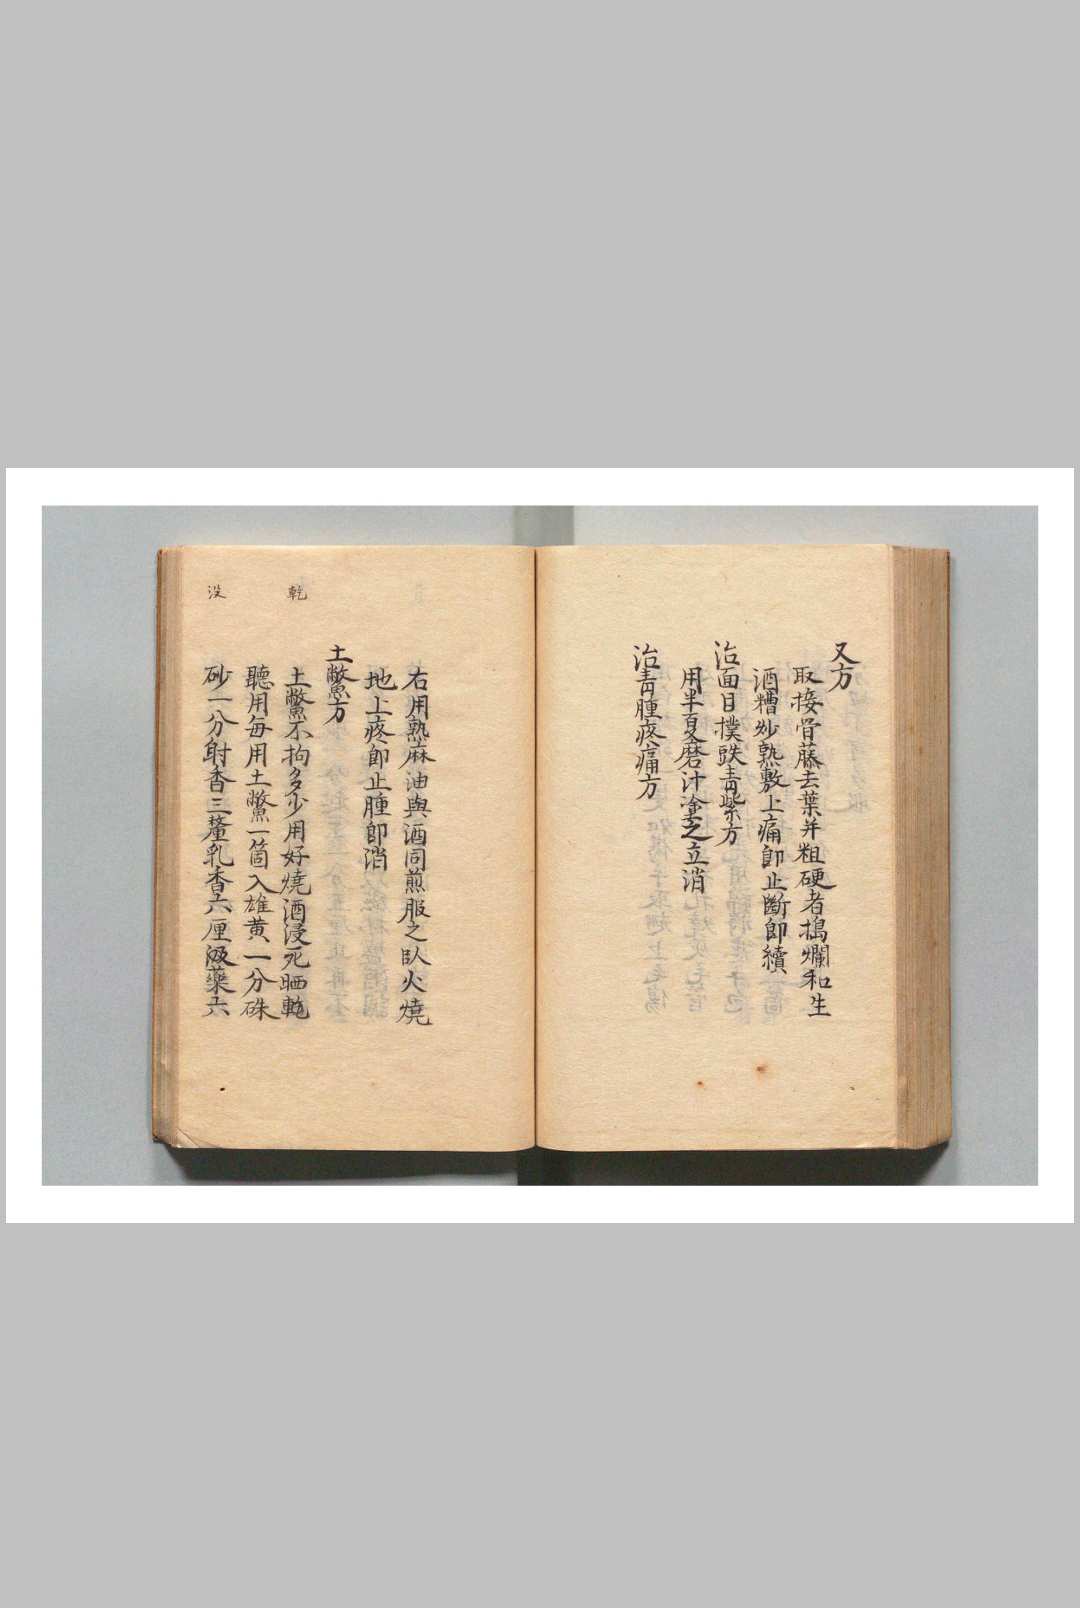 又方
取接骨藤去葉并粗硬者搗爛和生
酒糟炒熟敷上痛即止斷即續
治面目撲跌青紫方
用半夏磨汁塗之立消
治青腫疼痛方
右用熟麻油與酒同煎服之臥火燒
地上疼即止腫即消
土鱉方
土鱉不拘多少用好燒酒浸死晒乾
聽用每用土鱉一箇入雄黃一分硃
砂一分射香三釐乳香六厘沒藥六
乾
没